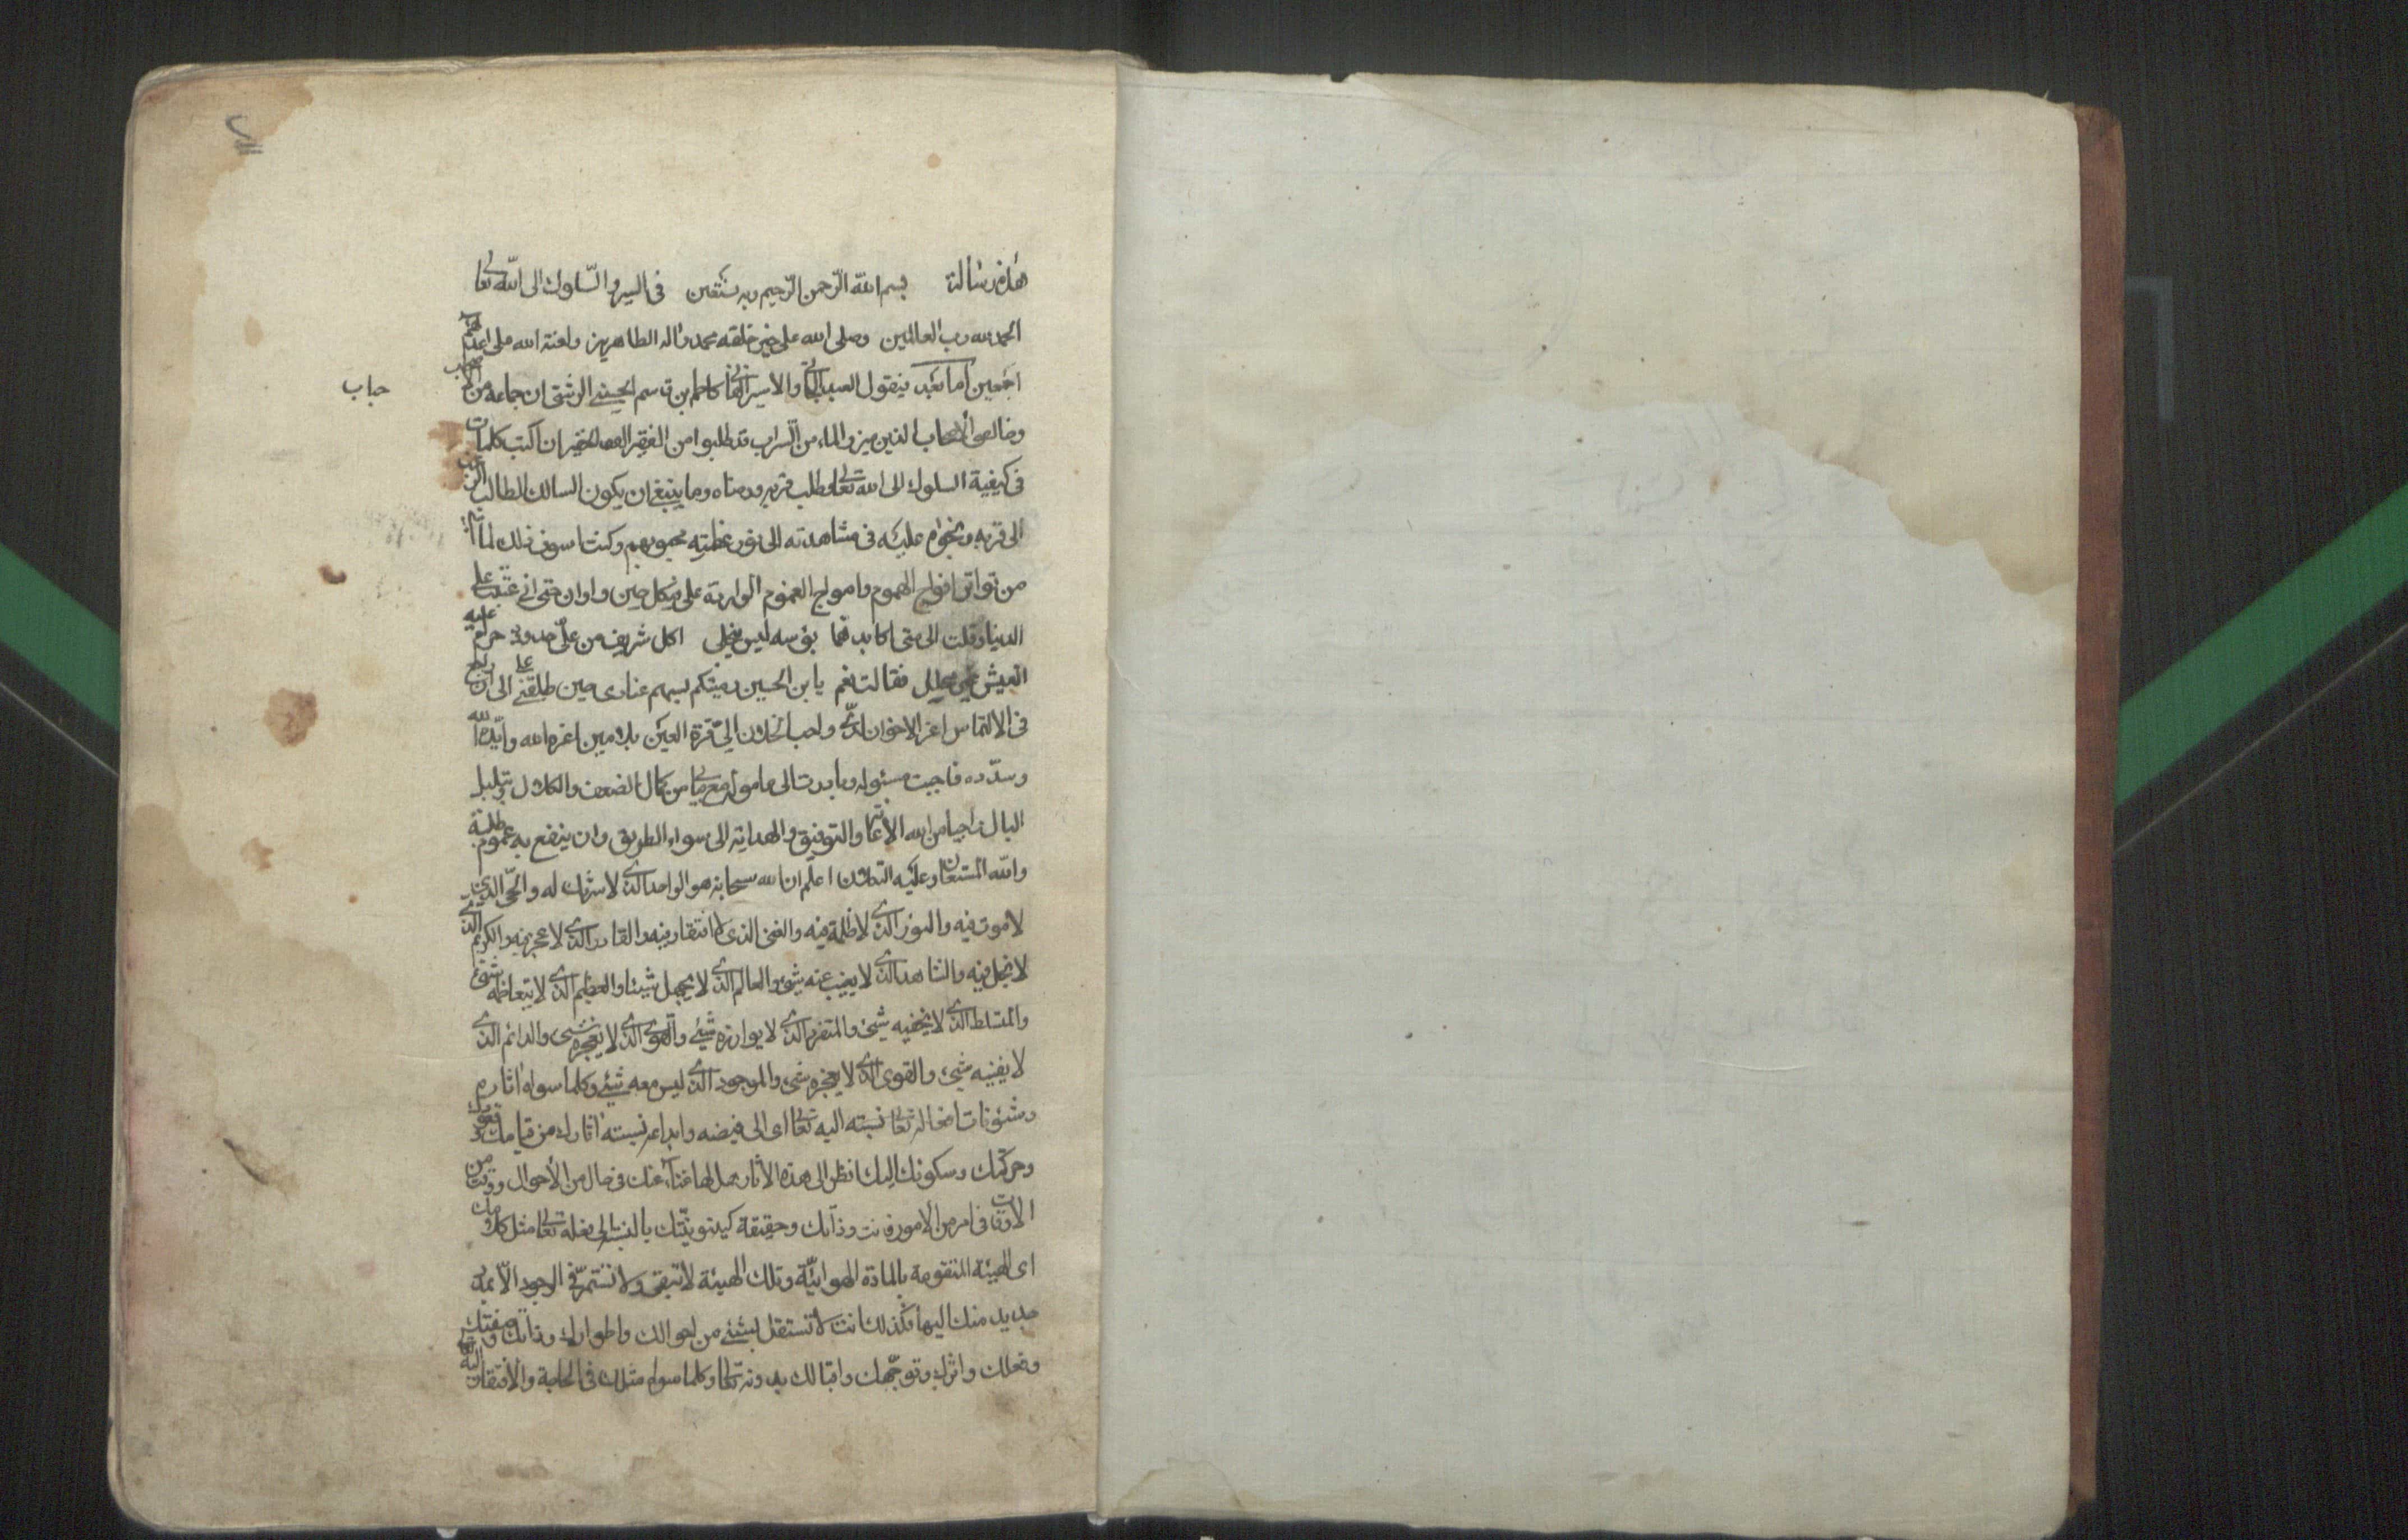 ٢
هذه رسالة بسم الله الرحمن الرحيم وبه نستعين في السير والسلوك الى الله تعالى
الحمد لله رب العالمين وصلى الله على خير خلقه محمد واله الطاهرين ولعنة الله على اعدائهم
اجمعين اما بعد فيقول العبد الجاني والاسير الفاني كاظم بن قاسم الحسيني الرشتي ان جماعة من
حباب
وخالصي الاصحاب الذين ميزوا الماء من السراب قد طلبوا من الفقير الحقير ان اكتب كلمات
في كيفية السلوك الى الله تعالى وطلب قربه ورضاه وما ينبغي ان يكون السالك الطالب
الى قربه في مشاهدته الى نور عظمته محبوبهم وكنت اسوف ذلك لما
من تواتر افواج الهموم وامواج الغموم الواردة على في كل حين واوان حتى اني عتبت على
الدنيا وقلت الى متى اكابد هما بؤسه ليس ينجلي اكل شريف من علي جدوده حرام عليه
العيش غير محلل فقالت نعم يا بن الحسين رميتكم بسهم عنادي حين طلقني علي الى ان
في الالتماس اعز الاخوان لدي واحب الخلان الي قرة العين اعزه الله وايده الله
وسدده فاجبت مسئوله وبادرت الى مأموله مع ما بي من كمال الضعف والكلال وتبلبل
البال راجيا من الله الاعانة والتوفيق والهداية الى سواء الطريق وان ينفع به عموم طلبة
والله المستعان وعليه التكلان اعلم ان الله سبحانه هو الواحد الذي لا شريك له والحي الذي
لا موت فيه والنور الذي لا ظلمة فيه والغني الذي لا افتقار فيه والقادر الذي لا عجز فيه والكريم الذي
لا بخل فيه والشاهد الذي لا يغيب عنه شيء والعالم الذي لا يجهل شيئا والعظيم الذي لا يتعاظمه شيء
والمتسلط الذي لا يخفيه شيئ والمتفرد الذي لا يوازنه شيئ والقوي الذي لا يعجزه شيء والدائم الذي
لا يفنيه شيئ والقوي الذي لا يعجزه شيء والموجود الذي ليس معه شيئ وكلما سواه اثاره
وشئونات افعاله تعالى نسبته اليه تعالى اي الى فيضه وابداعه نسبته اثارك من قيامك وقعودك
وحركتك وسكونك اليك انظر الى هذه الاثار هل لها غناء عنك في حال من الأحوال ووقت من
الاوقات في امر من الامور فانت وذاتك وحقيقة كينونيتك بالنسبة الى فعله تعالى مثل كلامك
اي الهيئة المتقومة بالمادة الهوائية وتلك الهيئة لا تبقى ولا تستمر في الوجود الا بمدد
جديد منك اليها فكذلك انت لا تستقل بشيئ من احوالك واطوارك وذاتك وصفتك
وفعلك واثرك وتوجهك واقبالك بدونه تعالى وكلما سواه مثلك في الحاجة والافتقار اليه